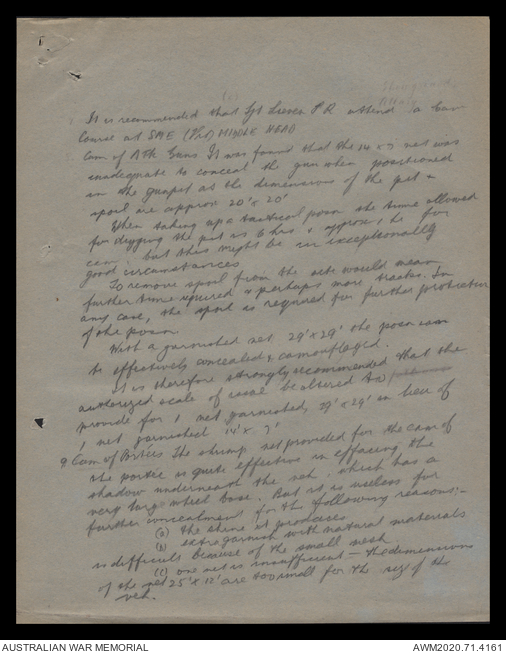 It is recommended that Sgt P R attend a Cam
Course at SME (Pro) MIDDLE HEAD
Cam of Atk Guns It was found that the 14 x 7 net was
inadequate to conceal the gun when positioned
in the gunpit as the dimensions of the pit &
spoil are approx 20' x 20'
When taking up a tactical posn the time allowed
for digging the pit is 6 hrs & approx 1 hr for
cam; but this might be in exceptionally
good circumstances
To remove spoil from the site would mean
further time required & perhaps more tracks. In
any case, the spoil is required for further protection
of the posn.
With a garnished net 29' x 29' the posn can
be effectively concealed & camouflaged.
It is therefore strongly recommended that the
authorized scale of issue be altered to
provide for 1 net garnished, 29' x 29' in lieu of
1 net garnished 14' x 7'
9 Cam of The shrimp net provided for the cam of
the portee is quite effective in effacing the
shadow underneath the veh. which has a
very long wheel base. But it is useless for
further concealment for the following reasons:-
(a) the shine it produces
(b) extra garnish with natural materials
is difficult because of the small mesh
(c) one net is insufficient - the dimensions
of the net 25' x 12' are too small for the size of the
veh.
AUSTRALIAN WAR MEMORIAL
AWM2020.71.4161